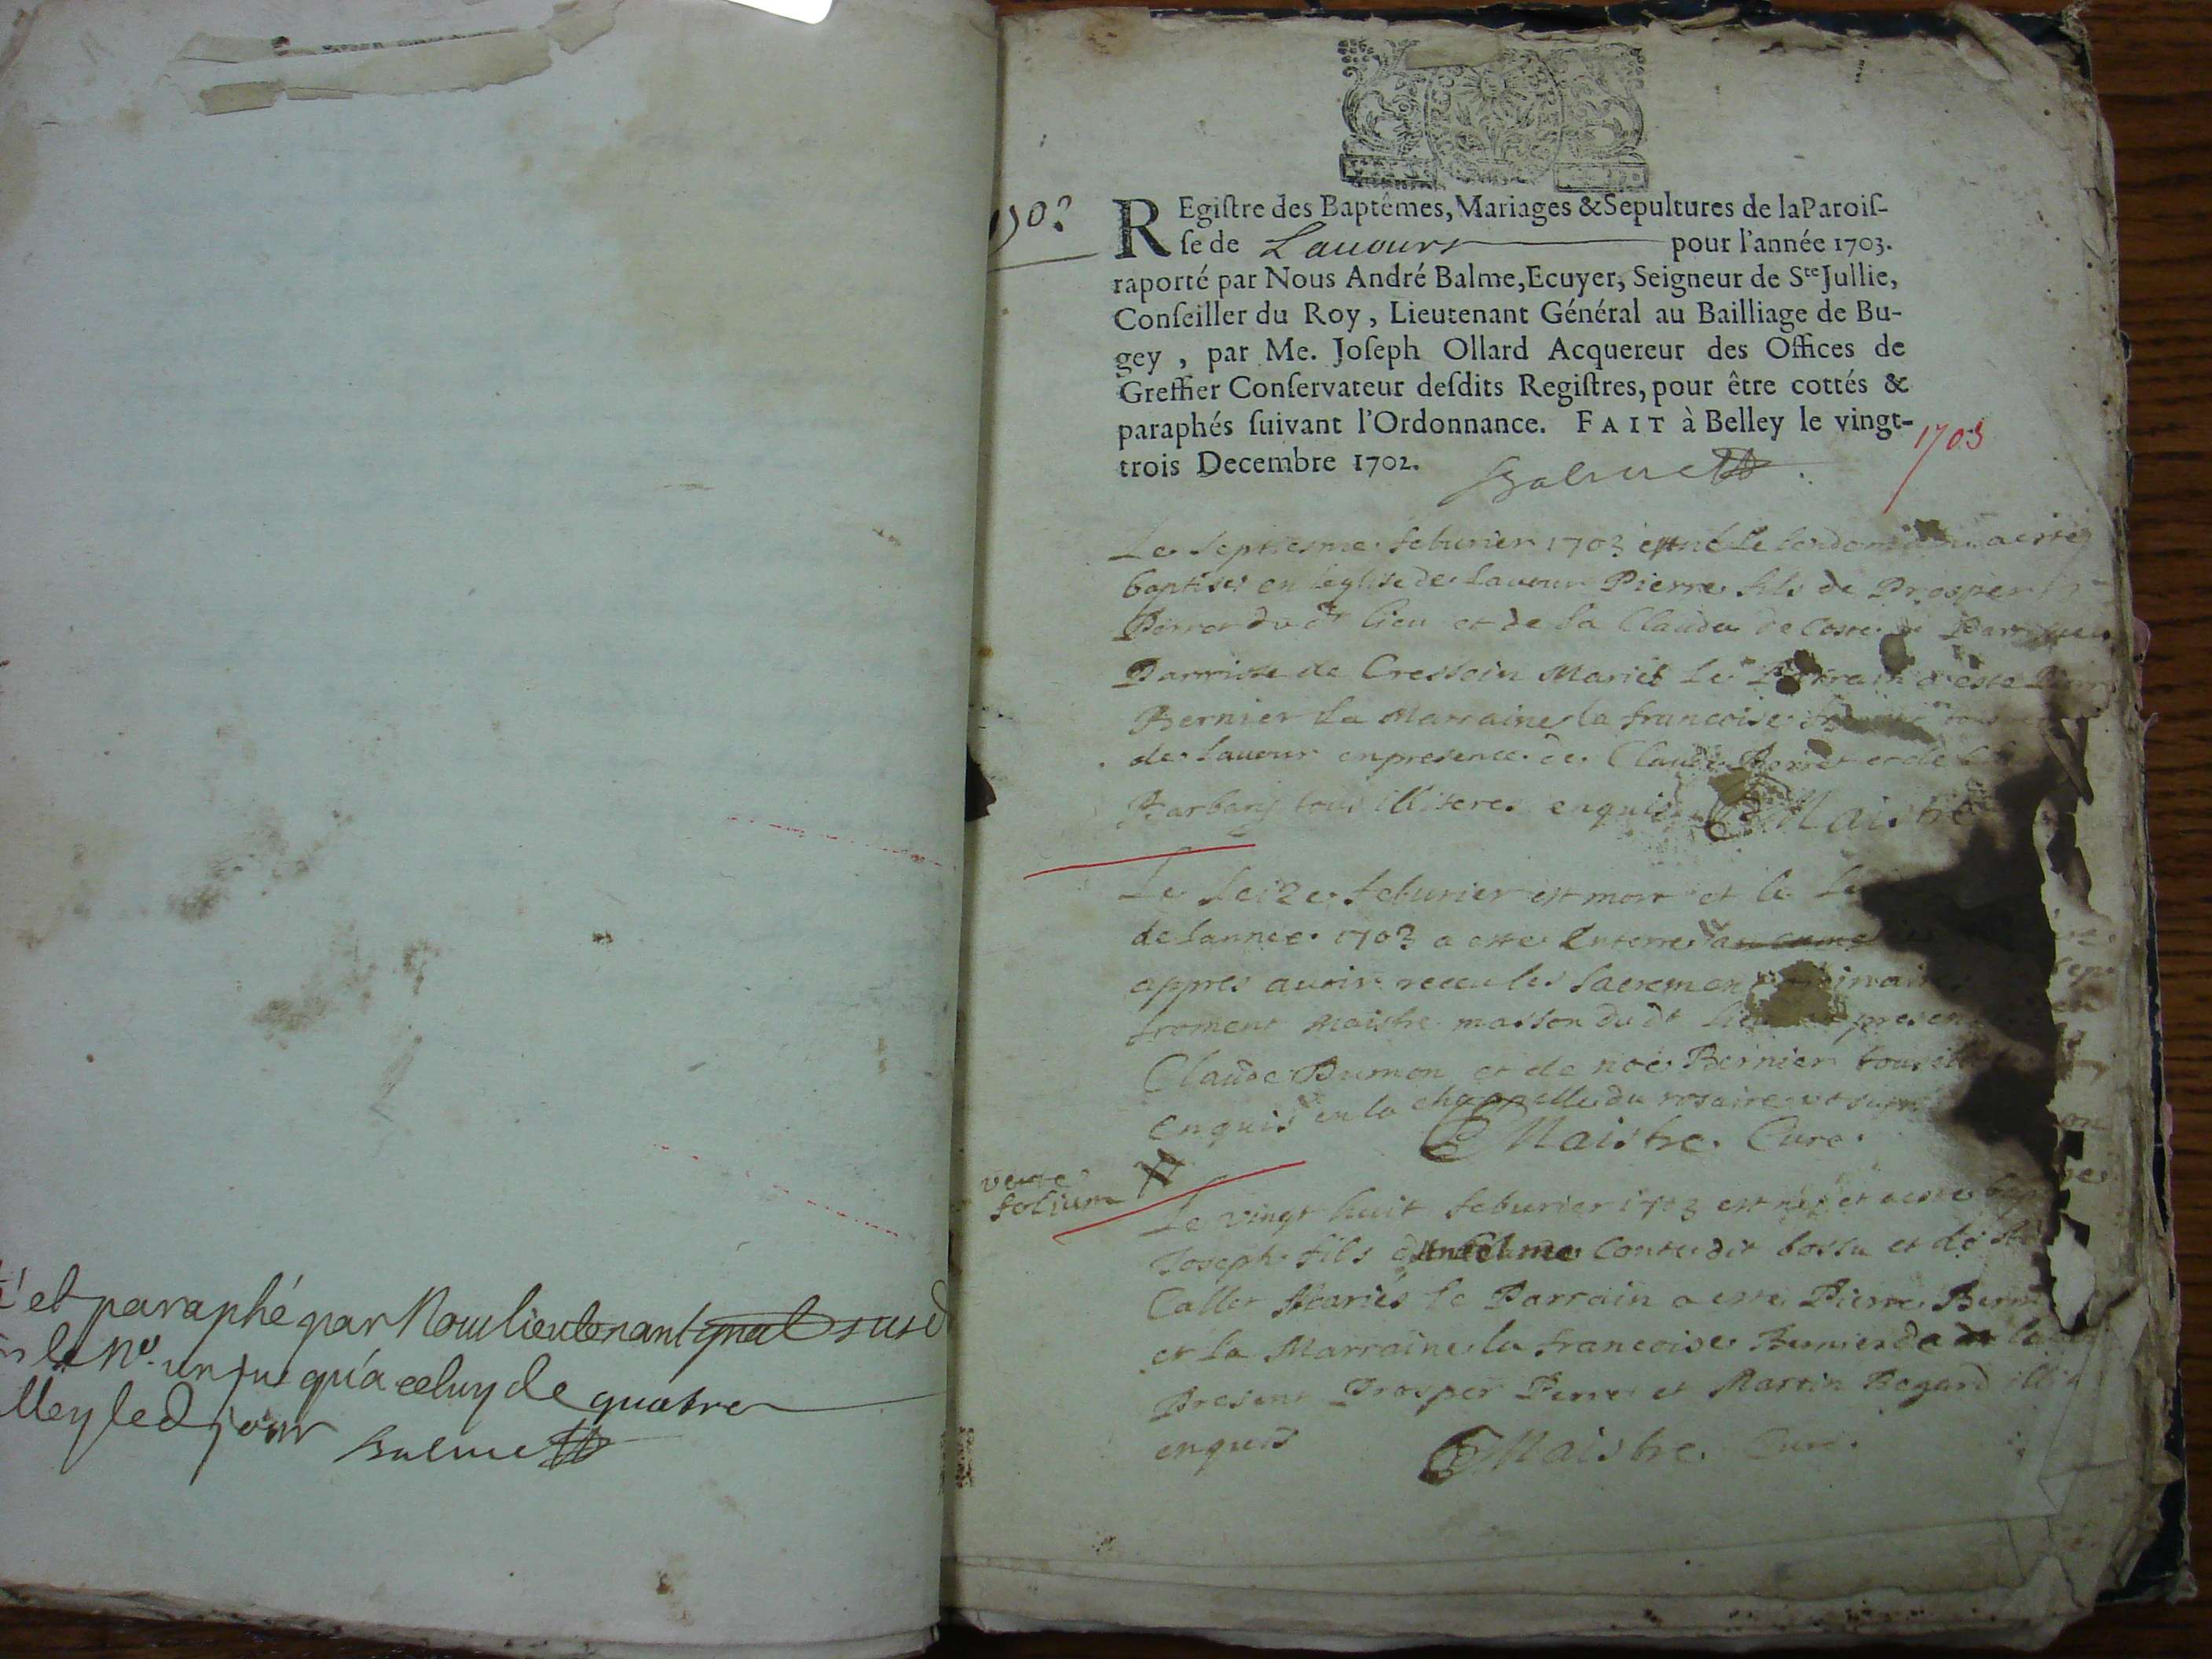 é et paraphé par Nous lieutenant gnal susd
le No. un jusqu'a celuy de quatre
lley led jour Balme
1703
REgiſtre des Baptêmes, Mariages & Sepultures de la Paroiſ-
ſe de Lauours pour l'année 1703.
raporté par Nous André Balme, Ecuyer, Seigneur de Ste Jullie,
Conſeiller du Roy, Lieutenant Général au Bailliage de Bu-
gey, par Me. Joſeph Ollard Acquereur des Offices de
Greffier Conſervateur deſdits Regiſtres, pour être cottés &
paraphés ſuivant l'Ordonnance. FAIT à Belley le vingt-
trois Decembre 1702. Balme
1703
Le septiesme feburier 1703 est né le lendemain a esté
baptisé en leglise de lauour Pierre fils de Prosper
Perret du dt lieu et de la Clauda de Coste
Parroisse de Cressein Mariés Le Parrain a esté
Bernier la Marraine la francoise
de lauour en presence de Claude Perret et de
Barbary tous illiteres enquis Maistre
Le seize feburier est mort et le
de lannee 1703 a esté Enterré
appres auoir receu les sacremens
froment maistre masson du dt lieu presen
Claude Dumon et de noé Bernier tous
enquis en la chappelle du rosaire
Maistre Curé
verte
folium
Le vingt huit feburier 1703 est né et a esté bap
Joseph fils danthelme Conte dit bossu et de
Callet Mariés le Parrain a esté Pierre Bern
et la Marraine la francoise Bernier
Present Prosper Perret et Martin Bogard
enquis Maistre Curé